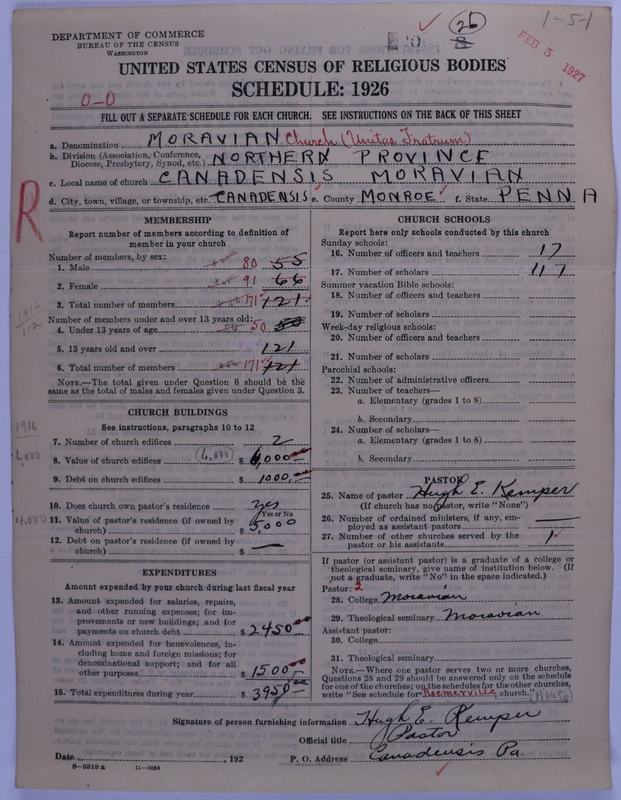 DEPARTMENT OF COMMERCE
BUREAU OF THE CENSUS
WASHINGTON
26
8
1-51
FEB 5 1927
UNITED STATES CENSUS OF RELIGIOUS BODIES
SCHEDULE: 1926
0-0
FILL OUT A SEPARATE SCHEDULE FOR EACH CHURCH. SEE INSTRUCTIONS ON THE BACK OF THIS SHEET
a. Denomination MORAVIAN Church (Unitas Fratrum)
b. Division (Association, Conference, Diocese, Presbytery, Synod, etc.) NORTHERN PROVINCE
c. Local name of church CANADENSIS MORAVIAN
d. City, town, village, or township, etc. CANADENSIS e. County MONROE f. State PENNA
R
MEMBERSHIP
Report number of members according to definition of
member in your church
Number of members, by sex:
1. Male 80 55
2. Female 91 66
3. Total number of members 171 121
1916
112
Number of members under and over 13 years old:
4. Under 13 years of age 50 50
5. 13 years old and over 121
6. Total number of members 171 121
NOTE.—The total given under Question 6 should be the
same as the total of males and females given under Question 3.
CHURCH BUILDINGS
See instructions, paragraphs 10 to 12
1916
7. Number of church edifices 2
8. Value of church edifices (6,000) $ 6,000
9. Debt on church edifices $ 1000
10. Does church own pastor's residence yes
Yes or No
4,000
11. Value of pastor's residence (if owned by
church) $ 5,000
12. Debt on pastor's residence (if owned by
church) $ —
EXPENDITURES
Amount expended by your church during last fiscal year
13. Amount expended for salaries, repairs,
and other running expenses; for im-
provements or new buildings; and for
payments on church debt $ 2450.00
14. Amount expended for benevolences, in-
cluding home and foreign missions; for
denominational support; and for all
other purposes $ 1500.00
15. Total expenditures during year $ 3950.00
CHURCH SCHOOLS
Report here only schools conducted by this church
Sunday schools:
16. Number of officers and teachers 17
17. Number of scholars 117
Summer vacation Bible schools:
18. Number of officers and teachers
19. Number of scholars
Week-day religious schools:
20. Number of officers and teachers
21. Number of scholars
Parochial schools:
22. Number of administrative officers
23. Number of teachers—
a. Elementary (grades 1 to 8)
b. Secondary
24. Number of scholars—
a. Elementary (grades 1 to 8)
b. Secondary
PASTOR
25. Name of pastor Hugh E. Kemper
(If church has no pastor, write "None")
26. Number of ordained ministers, if any, em-
ployed as assistant pastors —
27. Number of other churches served by the
pastor or his assistants 1
If pastor (or assistant pastor) is a graduate of a college or
theological seminary, give name of institution below. (If
not a graduate, write "No" in the space indicated.)
Pastor: 2
28. College Moravian
29. Theological seminary Moravian
Assistant pastor:
30. College
31. Theological seminary
NOTE.—Where one pastor serves two or more churches,
Questions 28 and 29 should be answered only on the schedule
for one of the churches; on the schedules for the other churches,
write "See schedule for Roemerville church." (Pike Co)
Signature of person furnishing information Hugh E. Kemper
Official title Pastor
Date , 192 P. O. Address Canadensis Pa.
8—5518 a 11—9684